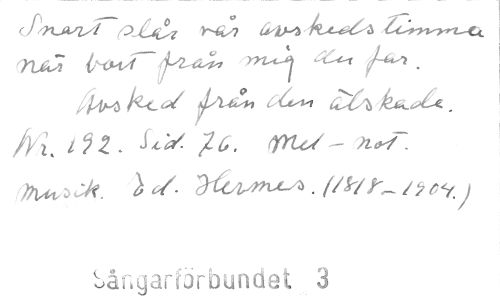 Snart slår vår avskedstimma
när bort från mig du far.
Avsked från den älskade.
Nr. 192. Sid. 76. Mel-not.
musik. Ed. Hermes. (1818-1904.)
Sångarförbundet 3